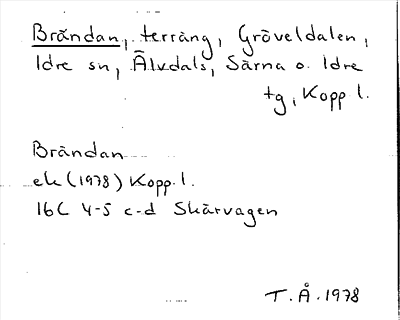 Brändan, terräng, Gröveldalen,
Idre sn, Älvdals, Särna o. Idre
tg, Kopp l.
Brändan
ek (1978) Kopp. l.
16C 4-5 c-d Skärvagen
T. Å. 1978